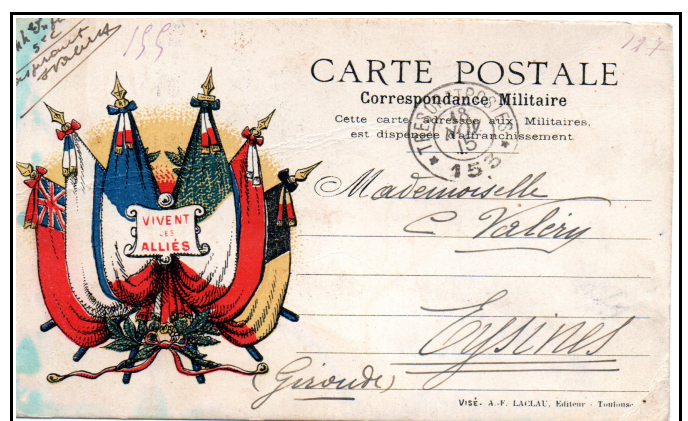 155
127
CARTE POSTALE
Correspondance Militaire
Cette carte adressée aux Militaires,
est dispensée d'affranchissement.
TRESOR ET POSTES
18
NOV
15
* 153 *
VIVENT
LES
ALLIÉS
Mademoiselle
C Valéry
Eysines
(Gironde)
VISÉ. A.-F. LACLAU, Éditeur - Toulouse